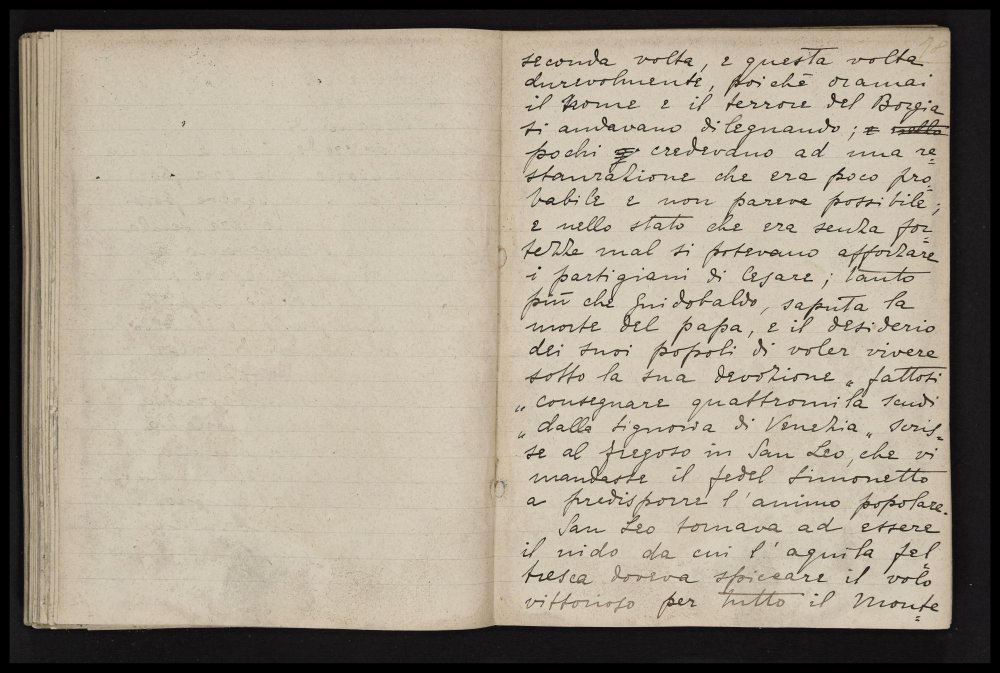 78
seconda volta, e questa volta
durevolmente, poichè oramai
il nome e il terrore del Borgia
si andavano dileguando; e nello
pochi e credevano ad una re=
staurazione che era poco pro=
babile e non pareva possibile;
e nello stato che era senza for=
tezze mal si potevano afforzare
i partigiani di Cesare; tanto
più che Guidobaldo, saputa la
morte del papa, e il desiderio
dei suoi popoli di voler vivere
sotto la sua devozione „ fattosi
„ consegnare quattromila scudi
„ dalla Signoria di Venezia „ scris=
se al Fregoso in San Leo, che vi
mandasse il fedel Simonetto
a predisporre l'animo popolare.
San Leo tornava ad essere
il nido da cui l'aquila fel
tresca doveva spiccare il volo
vittorioso per tutto il Monte=